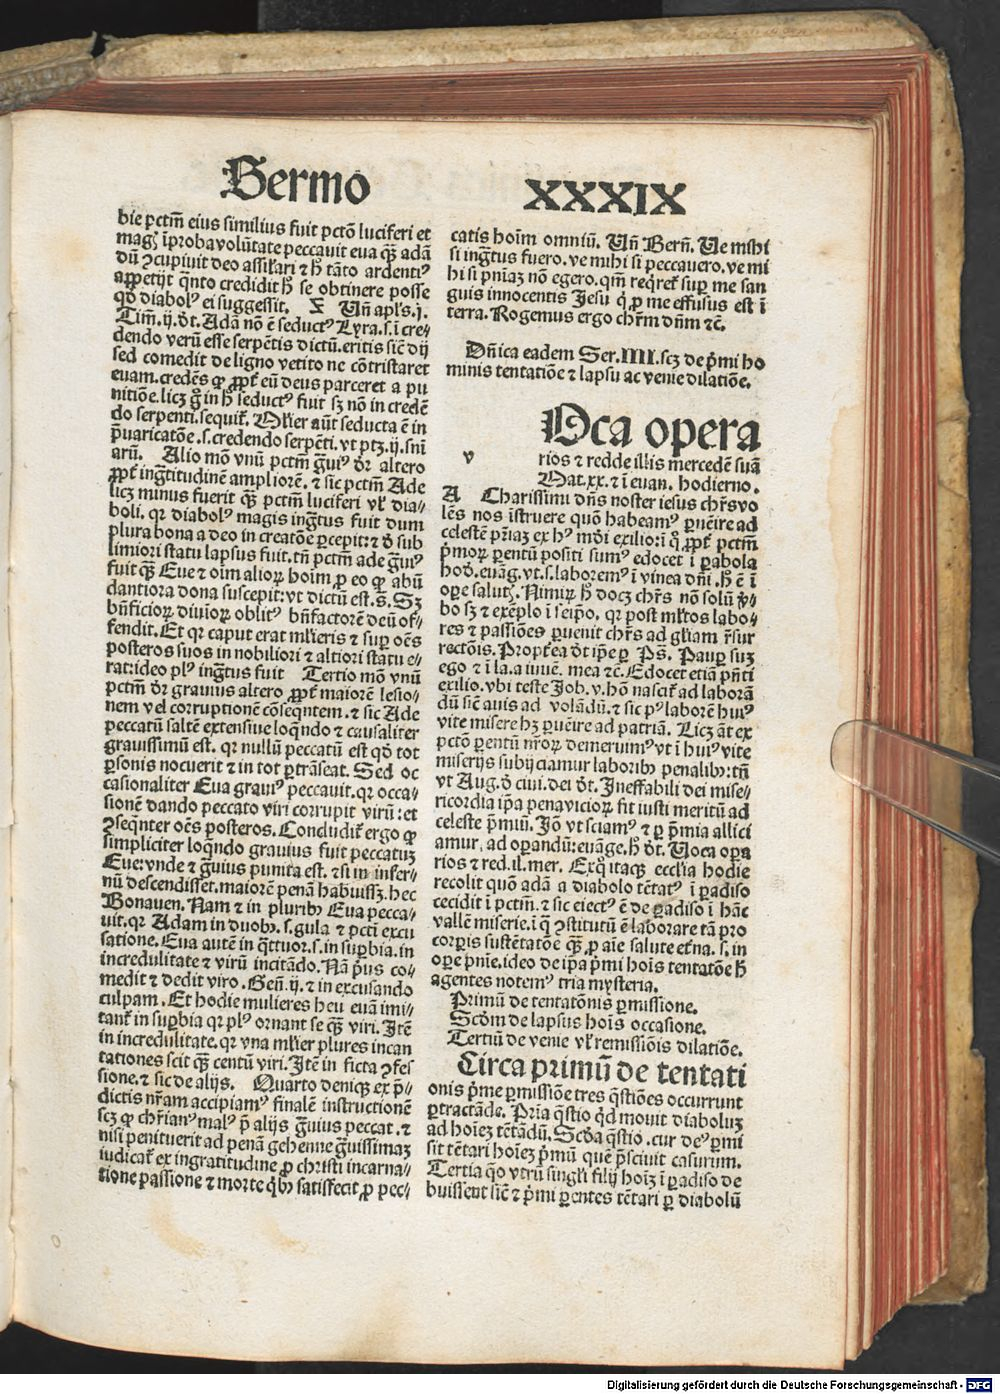 Sermo XXXIX
bie pctm̄ eius similius fuit pctō luciferi et
magꝫ īproba volūtate peccauit eua qꝫ̄ adā
dū ꝯcupiuit deo assil'ari ⁊ h̄ tāto ardentiꝰ
appetijt q̄nto credidit h̄ se obtinere posse
qđ diabolꝰ ei suggessit. Σ Uñ apl's.j.
Tim̄.ij.đt. Adā nō ē seductꝰ Lyra.s.ī cre-
dendo verū esse serpētis dictū.eritis sic̄ dij
sed comedit de ligno vetito ne cōtristaret
euam.credēs ꝙ ꝓpt̄ eū deus parceret a pu
nitiōe.licꝫ g̊ in h̄ seductꝰ fuit sꝫ nō in credē
do serpenti.sequit᷑. Mul'ier aūt seducta ē in
p̄uaricatōe.s.credendo serpēti.vt ptꝫ.ij.sn̄i
arū. Alio mō vnū pctm̄ g̊uiꝰ dr̄ altero
ꝓpt̄ ingr̄titudinē ampliorē.⁊ sic pctm̄ Ade
licꝫ minus fuerit qꝫ̄ pctm̄ luciferi vl' dia-
boli.qr diabolꝰ magis ingr̄tus fuit dum
plura bona a deo in creatōe ꝑcepit:⁊ đ sub
limiori statu lapsus fuit.tn̄ pctm̄ ade g̊uiꝰ
fuit qꝫ̄ Eue ⁊ oīm alioꝝ hoīm ꝓ eo ꝙ abū
dantiora dona suscepit:vt dictū est.s̄. Sꝫ
bn̄ficioꝝ diuioꝝ oblitꝰ bn̄factorē deū of-
fendit. Et qr caput erat mul'ieris ⁊ suꝑ oēs
posteros suos in nobiliori ⁊ altiori statu e-
rat:ideo plꝰ ingr̄tus fuit Tertio mō vnū
pctm̄ dr̄ grauius altero ꝓpt̄ maiorē lesio-
nem vel corruptionē cōseq̄ntem.⁊ sic Ade
peccatū saltē extensiue loq̄ndo ⁊ causaliter
grauissimū est. qr nullū peccatū est qđ tot
ꝑsonis nocuerit ⁊ in tot ꝑtrāseat. Sed oc
casionaliter Eua grauiꝰ peccauit.qr occa-
sionē dando peccato viri corrupit virū:et
ꝯseq̄nter oēs posteros. Concludit᷑ ergo ꝙ
simpliciter loq̄ndo grauius fuit peccatuꝫ
Eue:vnde ⁊ g̊uius punita est.⁊ si in infer-
nū descendisset.maiorē penā habuissꝫ.hec
Bonauen. Nam ⁊ in pluribꝰ Eua pecca-
uit.qr Adam in duobꝰ.s.gula ⁊ pcti excu
satione. Eua autē in q̄ttuor.s.in suꝑbia.in
incredulitate ⁊ virū incitādo. Nā p̄us co-
medit ⁊ dedit viro. Gen̄.ij.⁊ in excusando
culpam. Et hodie mulieres heu euā imi-
tant᷑ in suꝑbia qr plꝰ ornant se qꝫ̄ viri. Itē
in incredulitate.qr vna mul'ier plures incan
tationes scit qꝫ̄ centū viri. Itē in ficta ꝯfes
sione.⁊ sic de alijs. Quarto deniqꝫ ex p̄-
dictis nr̄am accipiamꝰ finalē instructionē
scꝫ ꝙ chr̄ianꝰ malꝰ p̄ alijs g̊uius peccat.⁊
nisi penituerit ad penā gehenne g̊uissimaꝫ
iudicat᷑ ex ingratitudine ꝓ christi incarna-
tione passione ⁊ morte qb̄ꝰ satisfecit ꝓ pec-
catis hoīm omniū. Uñ Bern̄. Ue mihi
si ingr̄tus fuero.ve mihi si peccauero.ve mi
hi si pn̄iaꝫ nō egero.qm̄ req̄ret᷑ suꝑ me san
guis innocentis Jesu q̇ ꝓ me effusus est ī
terra. Rogemus ergo chr̄m dn̄m ⁊c̄.
Dn̄ica eadem Ser.IIII.scꝫ de p̄mi ho
minis tentatiōe ⁊ lapsu ac venie dilatiōe.
v Oca opera
rios ⁊ redde illis mercedē suā
Mat.xx.⁊ ī euan. hodierno.
A Charissimi dn̄s noster iesus chr̄s vo
lēs nos īstruere quō habeamꝰ ꝑuēire ad
celestē pr̄iaꝫ ex hꝰ mūdi exilio:ī q̇ ꝓpt̄ pctm̄
p̄moꝝ ꝑentū positi sumꝰ edocet ī ꝑabola
hođ.euāg.vt.s.laboremꝰ ī vinea dn̄i.h̄ ē ī
oꝑe salutꝭ. Nimiꝝ h̄ docꝫ chr̄s nō solū v̄-
bo sꝫ ⁊ exēplo ī seip̄o, qr post ml'tos labo-
res ⁊ passiōes ꝑuenit chr̄s ad gl'iam r̄sur
rectōis. Propt̄ea đt ip̄e ꝑ Ps̄. Pauꝑ suꝫ
ego ⁊ ī la.a iuuē. mea ⁊c̄. Edocet etiā pn̄ti
exilio.vbi teste Job.v.hō nascit᷑ ad laborā
dū sic̄ auis ad volādū.⁊ sic pꝰ laborē huiꝰ
vite misere hꝫ ꝑuēire ad patriā. Licꝫ āt ex
pctō ꝑentū nr̄oꝝ demeruimꝰ vt ī huiꝰ vite
miserijs subijciamur laboribꝰ penalibꝰ:tn̄
vt Aug.đ ciui.dei đt. Ineffabili dei mise-
ricordia ip̄a pena vicioꝝ fit iusti meritū ad
celeste p̄miū. Jō vt sciamꝰ ⁊ ꝑ p̄mia allici
amur, ad oꝑandū:euāge.h̄ đt. Uoca oꝑa
rios ⁊ red.il.mer. Ex q̇ itaqꝫ eccl'ia hodie
recolit quō adā a diabolo tētatꝰ ī ꝑadiso
cecidit ī pctm̄.⁊ sic eiectꝰ ē de ꝑadiso ī hāc
vallē miserie.ī q̇ ꝯstitutū ē laborare tā pro
corꝑis sustētatōe qꝫ̄ ꝓ aīe salute et̄na.s.in
oꝑe pn̄ie.ideo de ip̄a p̄mi hoīs tentatōe h̄
agentes notemꝰ tria mysteria.
Primū de tentatōnis ꝑmissione.
Scđm de lapsus hoīs occasione.
Tertiū de venie vl' remissiōis dilatiōe.
Circa primū de tentati
onis p̄me ꝑmissiōe tres q̄stiōes occurrunt
ꝑtractāde. Pr̄ia q̄stio qđ mouit diaboluꝫ
ad hoīeꝫ tētādū. Scđa q̄stio.cur deꝰ ꝑmi
sit tētari hoīeꝫ p̄mū quē p̄sciuit casurum.
Tertia qō vtrū singl'i filij hoīꝫ ī ꝑadiso de
buissent sic̄ ⁊ p̄mi ꝑentes tētari ꝑ diabolū
Digitalisierung gefördert durch die Deutsche Forschungsgemeinschaft - DFG